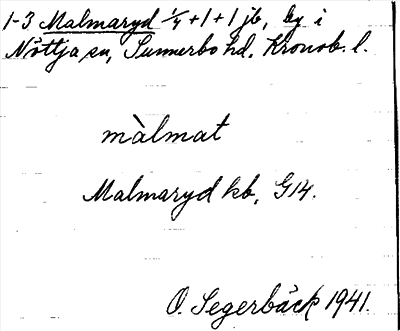 1-3 Malmaryd 1/4+1+1 jb, by i
Nöttja sn, Sunnerbo hd. Kronob. l.
màlmat
Malmaryd kb, G14.
O. Segerbäck 1941.